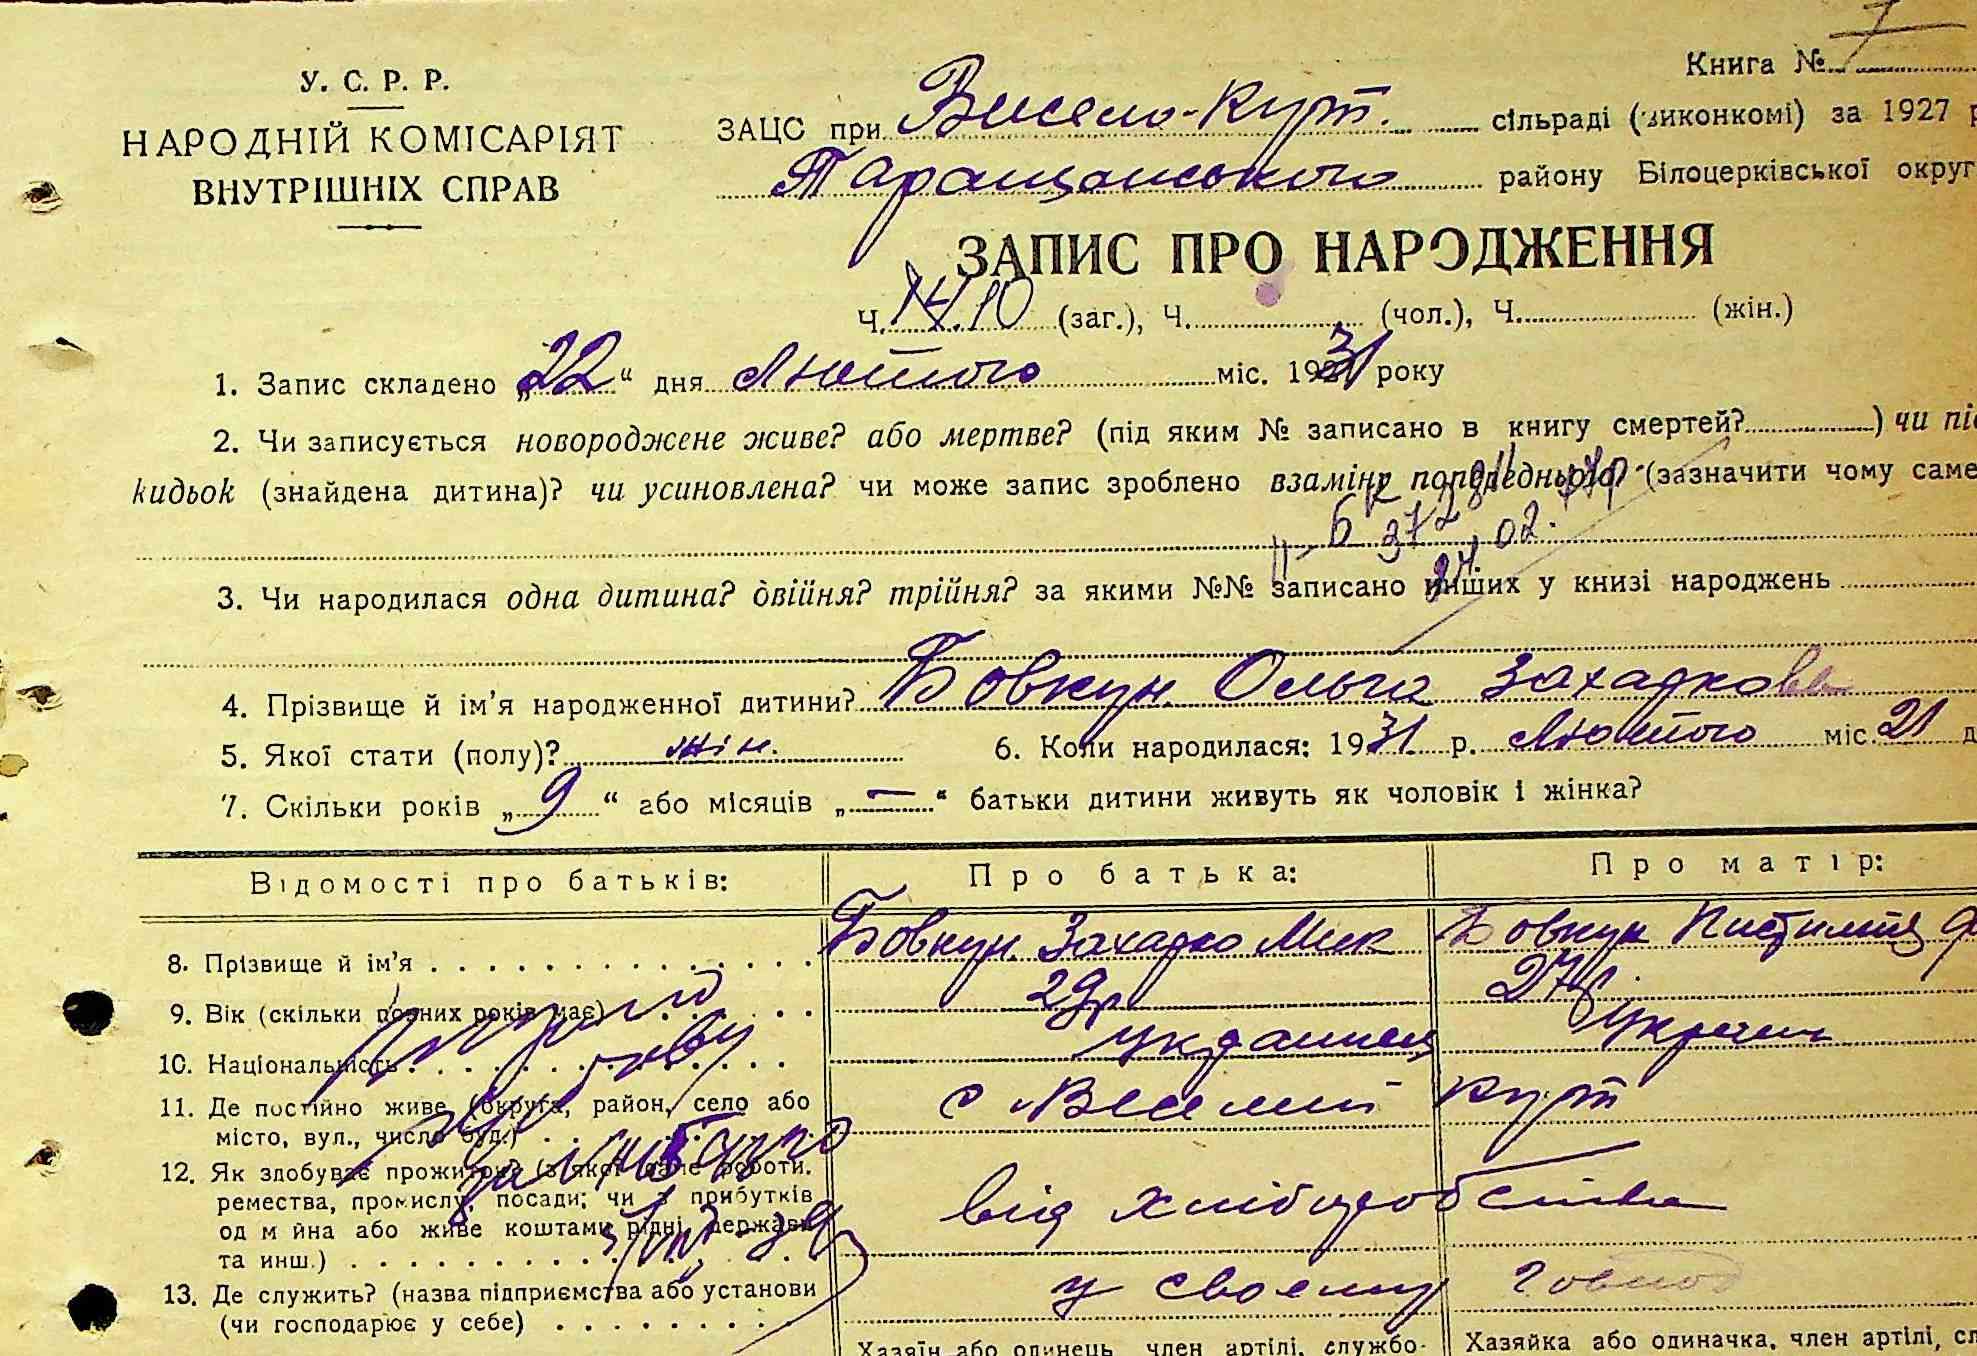 7
У. С. Р. Р.
НАРОДНІЙ КОМІСАРІЯТ
ВНУТРІШНІХ СПРАВ
Книга №
ЗАЦС при Весело-Кут. сільраді (виконкомі) за 1927 р
Таращанського району Білоцерківської округ
ЗАПИС ПРО НАРОДЖЕННЯ
Ч. 10 (заг.), Ч. (чол.), Ч. (жін.)
1. Запис складено „22“ дня Лютого міс. 1931 року
2. Чи записується новороджене живе? або мертве? (під яким № записано в книгу смертей? ) чи під
кидьок (знайдена дитина)? чи усиновлена? чи може запис зроблено взамінь попереднього? (зазначити чому саме
02.
3. Чи народилася одна дитина? двійня? трійня? за якими №№ записано инших у книзі народжень
4. Прізвище й ім'я народженної дитини? Бовкун Ольга Захаркова
5. Якої стати (полу)? жін. 6. Коли народилася: 1931 р. Лютого міс. 21 д
7. Скільки років „9“ або місяців „—“ батьки дитини живуть як чоловік і жінка?
Відомості про батьків: Про батька: Про матір:
8. Прізвище й ім'я Бовкун Захарко Мик Бовкун
9. Вік (скільки повних років має) 29 р 27 р
10. Національність українец україн
11. Де постійно живе (округа, район, село або с Веселий Кут
місто, вул., число буд.)
12. Як здобуває прожиток? (з якої саме роботи.
ремества, промислу, посади; чи з прибутків від хліборобства
од майна або живе коштами рідні, держави
та инш.)
13. Де служить? (назва підприємства або установи у своему господ
(чи господарює у себе)
Хазяїн або одинець, член артілі, службо- Хазяйка або одиначка, член артілі, сл